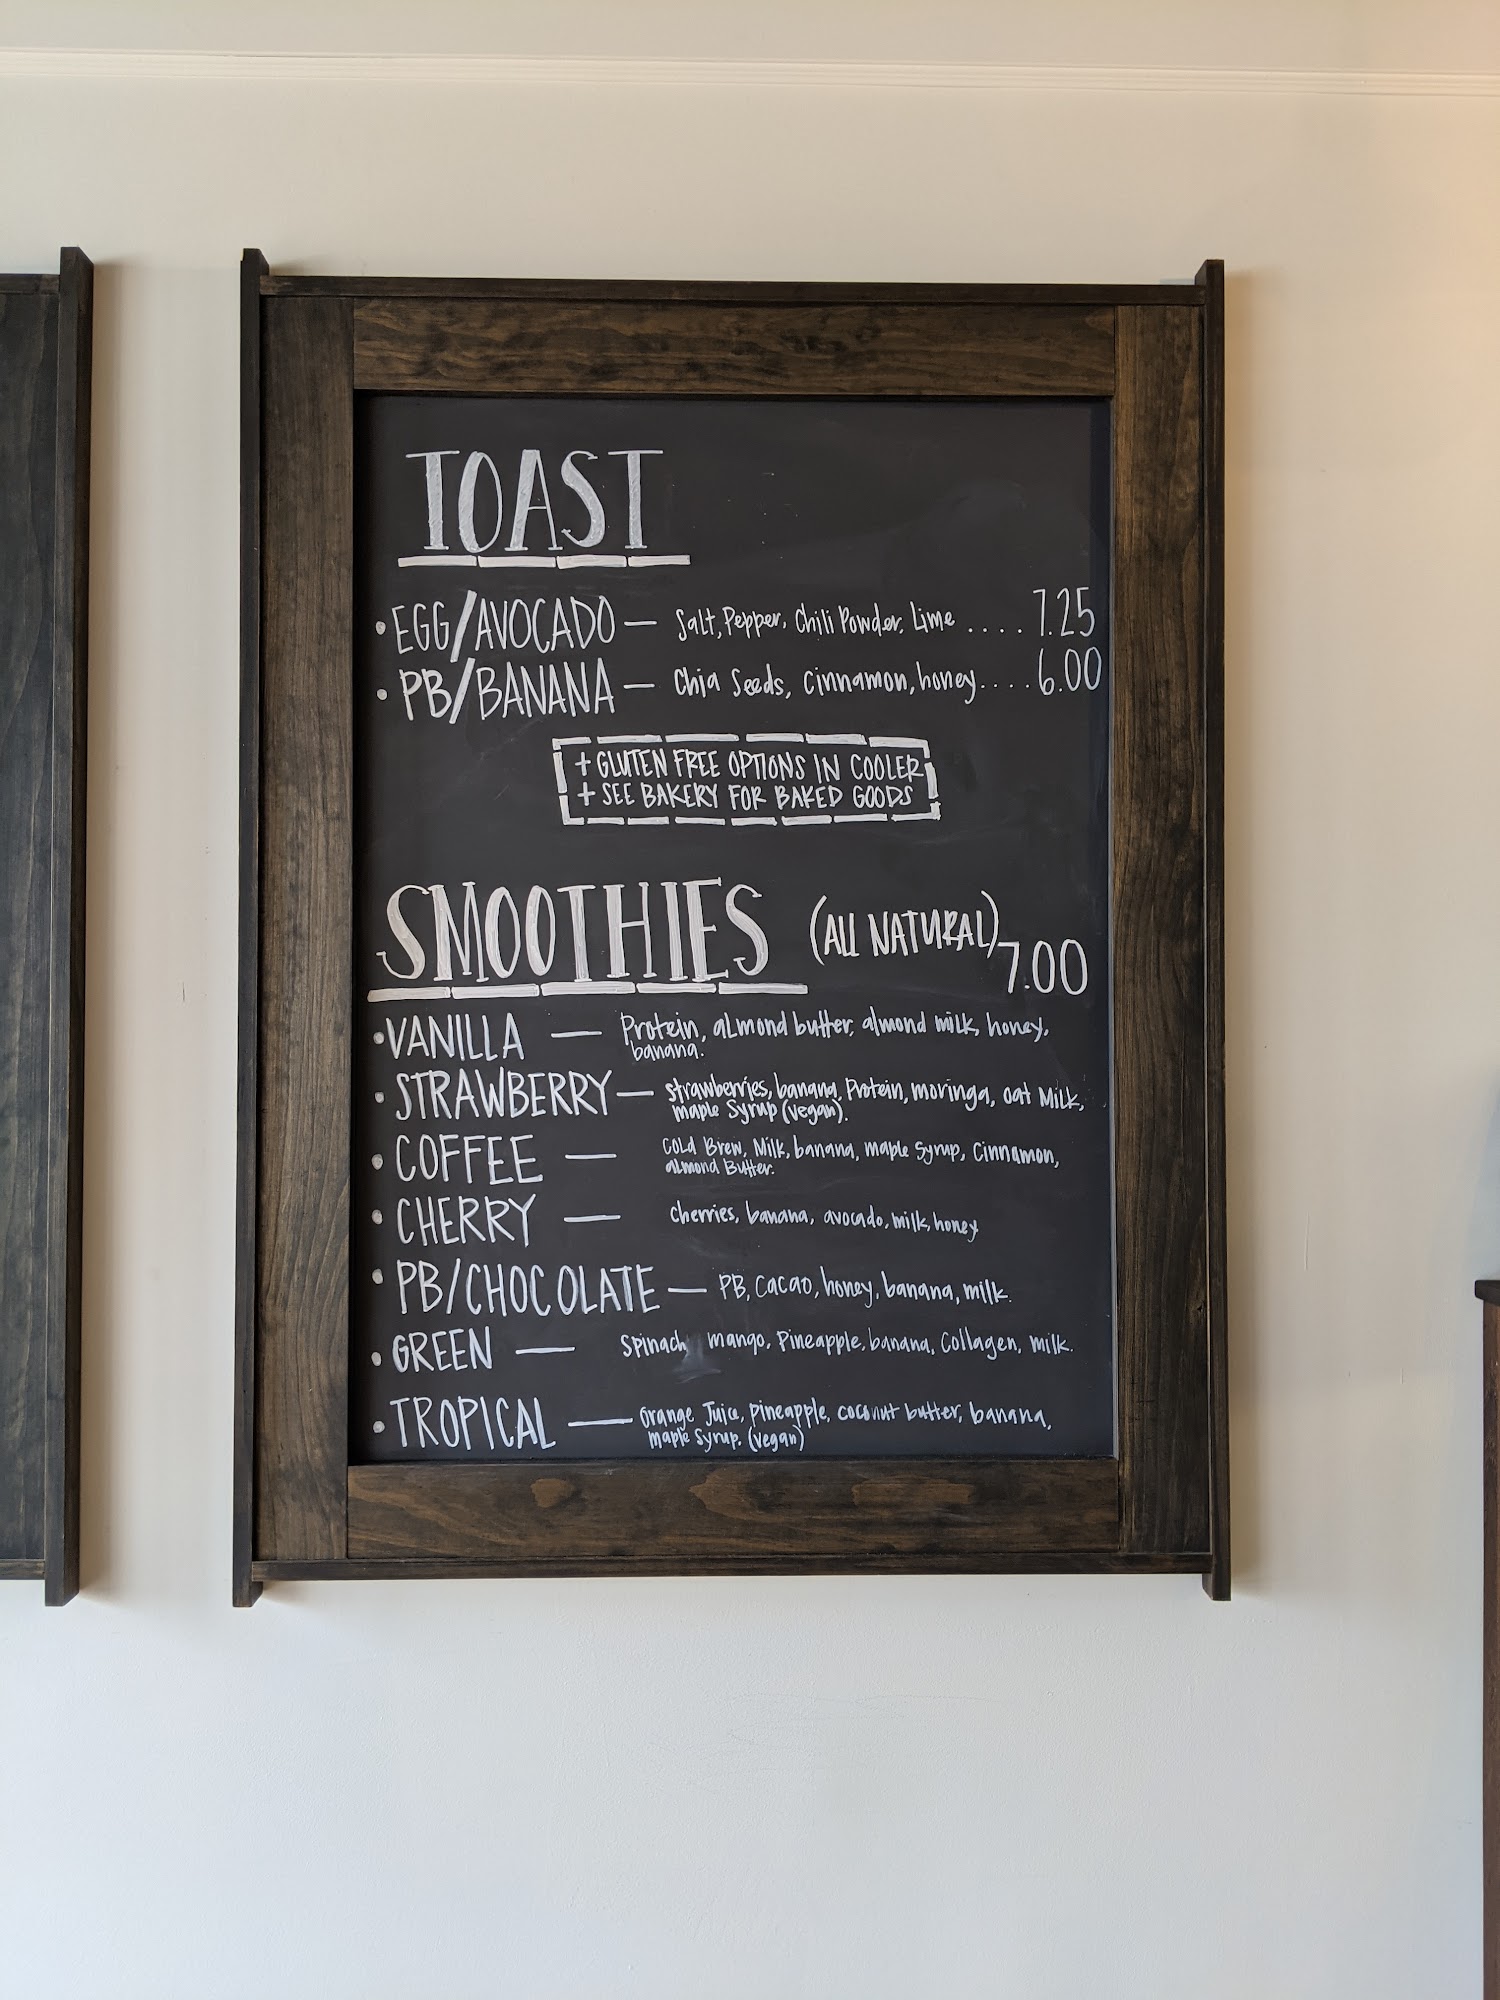 TOAST
• EGG/AVOCADO — Salt, Pepper, Chili Powder, Lime .... 7.25
• PB/BANANA — Chia Seeds, cinnamon, honey .... 6.00
+ GLUTEN FREE OPTIONS IN COOLER
+ SEE BAKERY FOR BAKED GOODS
SMOOTHIES (ALL NATURAL) 7.00
• VANILLA — Protein, almond butter, almond milk, honey,
banana.
• STRAWBERRY — strawberries, banana, Protein, moringa, oat Milk,
maple Syrup (vegan).
• COFFEE — Cold Brew, Milk, banana, maple Syrup, Cinnamon,
almond Butter.
• CHERRY — cherries, banana, avocado, milk, honey
• PB/CHOCOLATE — PB, Cacao, honey, banana, milk.
• GREEN — Spinach, mango, Pineapple, banana, Collagen, milk.
• TROPICAL — Orange Juice, pineapple, coconut butter, banana,
maple Syrup. (vegan)